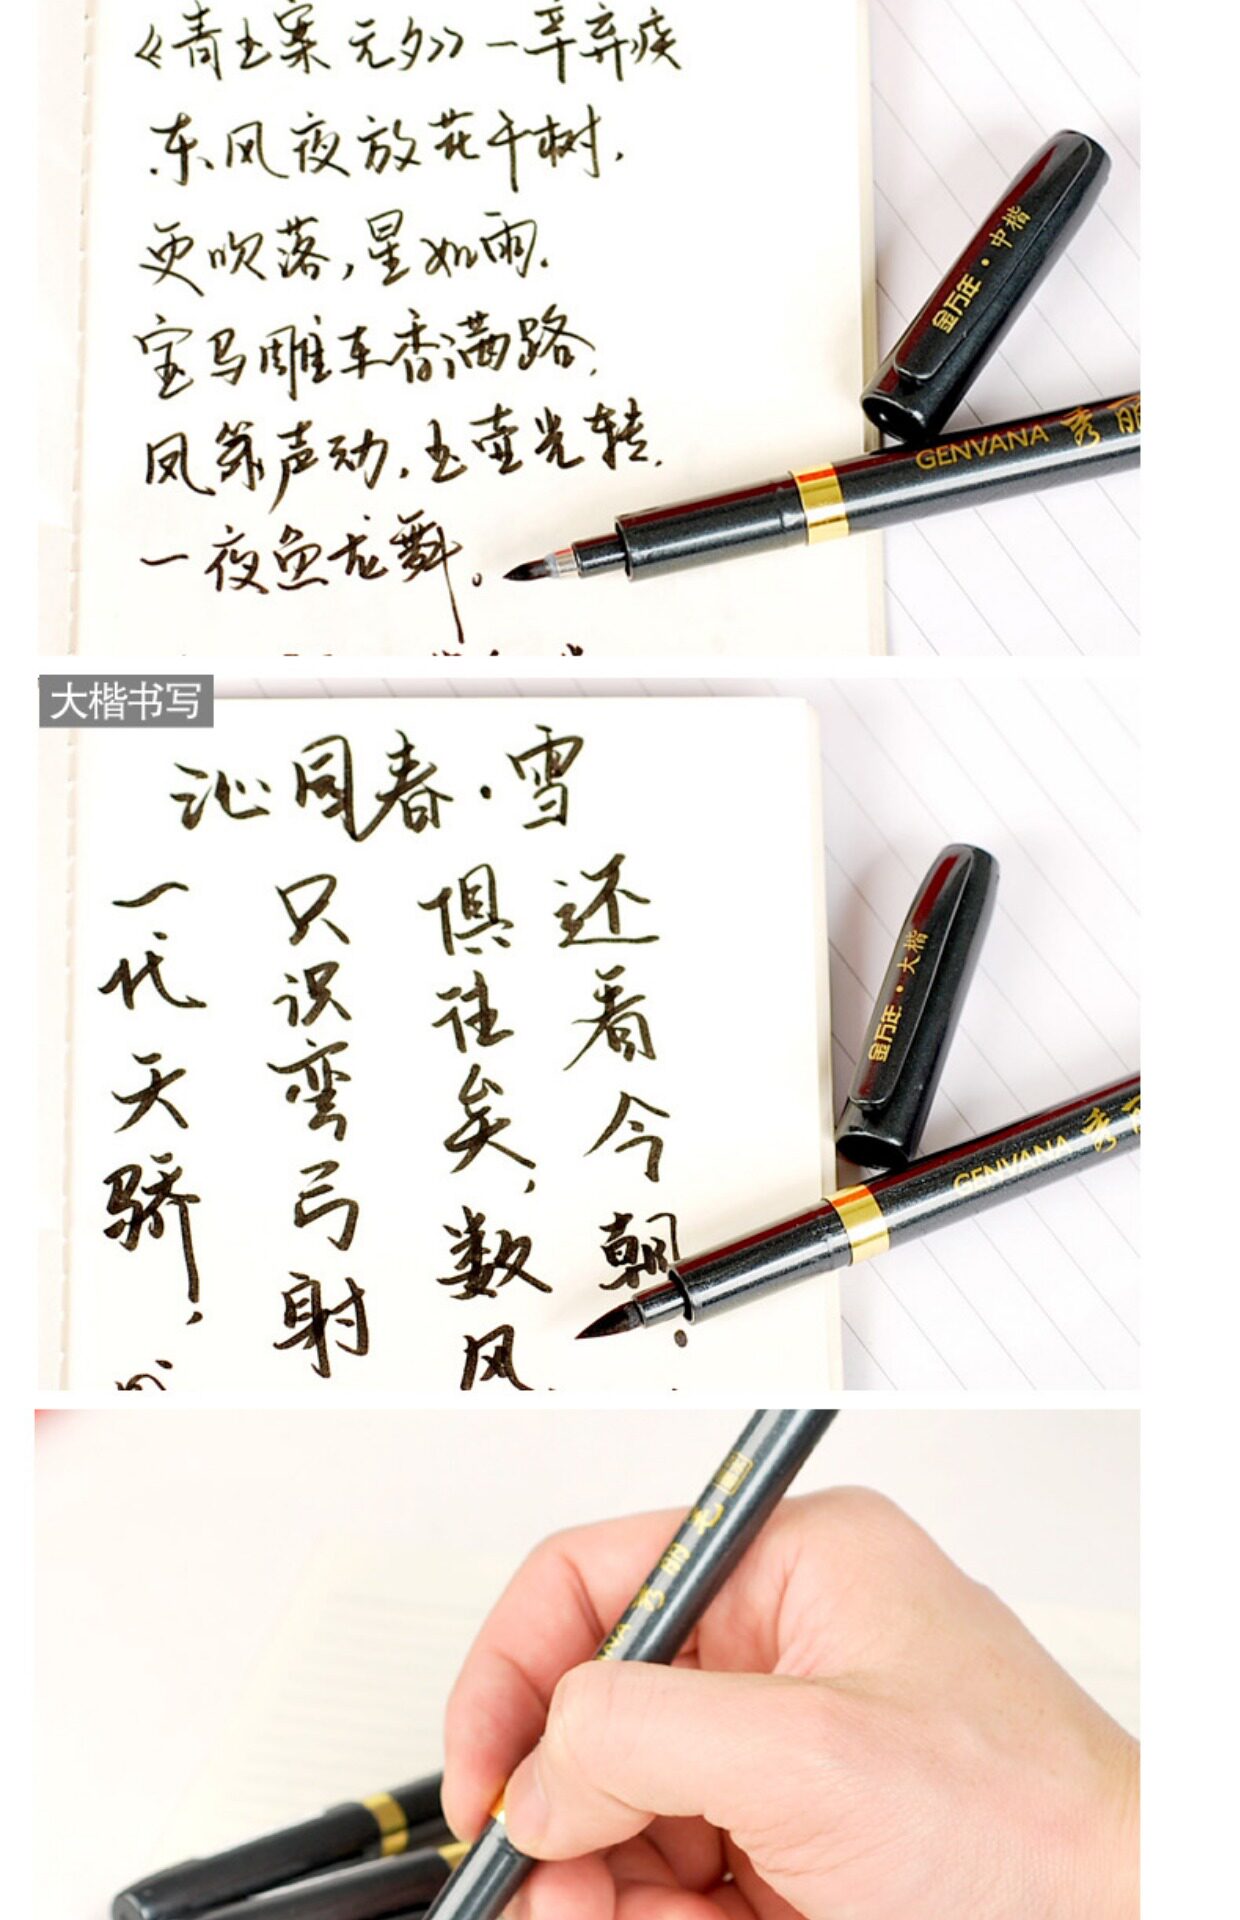 《青玉案 元夕》一辛弃疾
东风夜放花千树,
更吹落,星如雨.
宝马雕车香满路.
凤箫声动,玉壶光转.
一夜鱼龙舞。
金万年·中楷
GENVANA 秀丽
大楷书写
沁园春·雪
一代天骄,
只识弯弓射
俱往矣,数风
还看今朝.
金万年·大楷
GENVANA 秀
秀丽毛